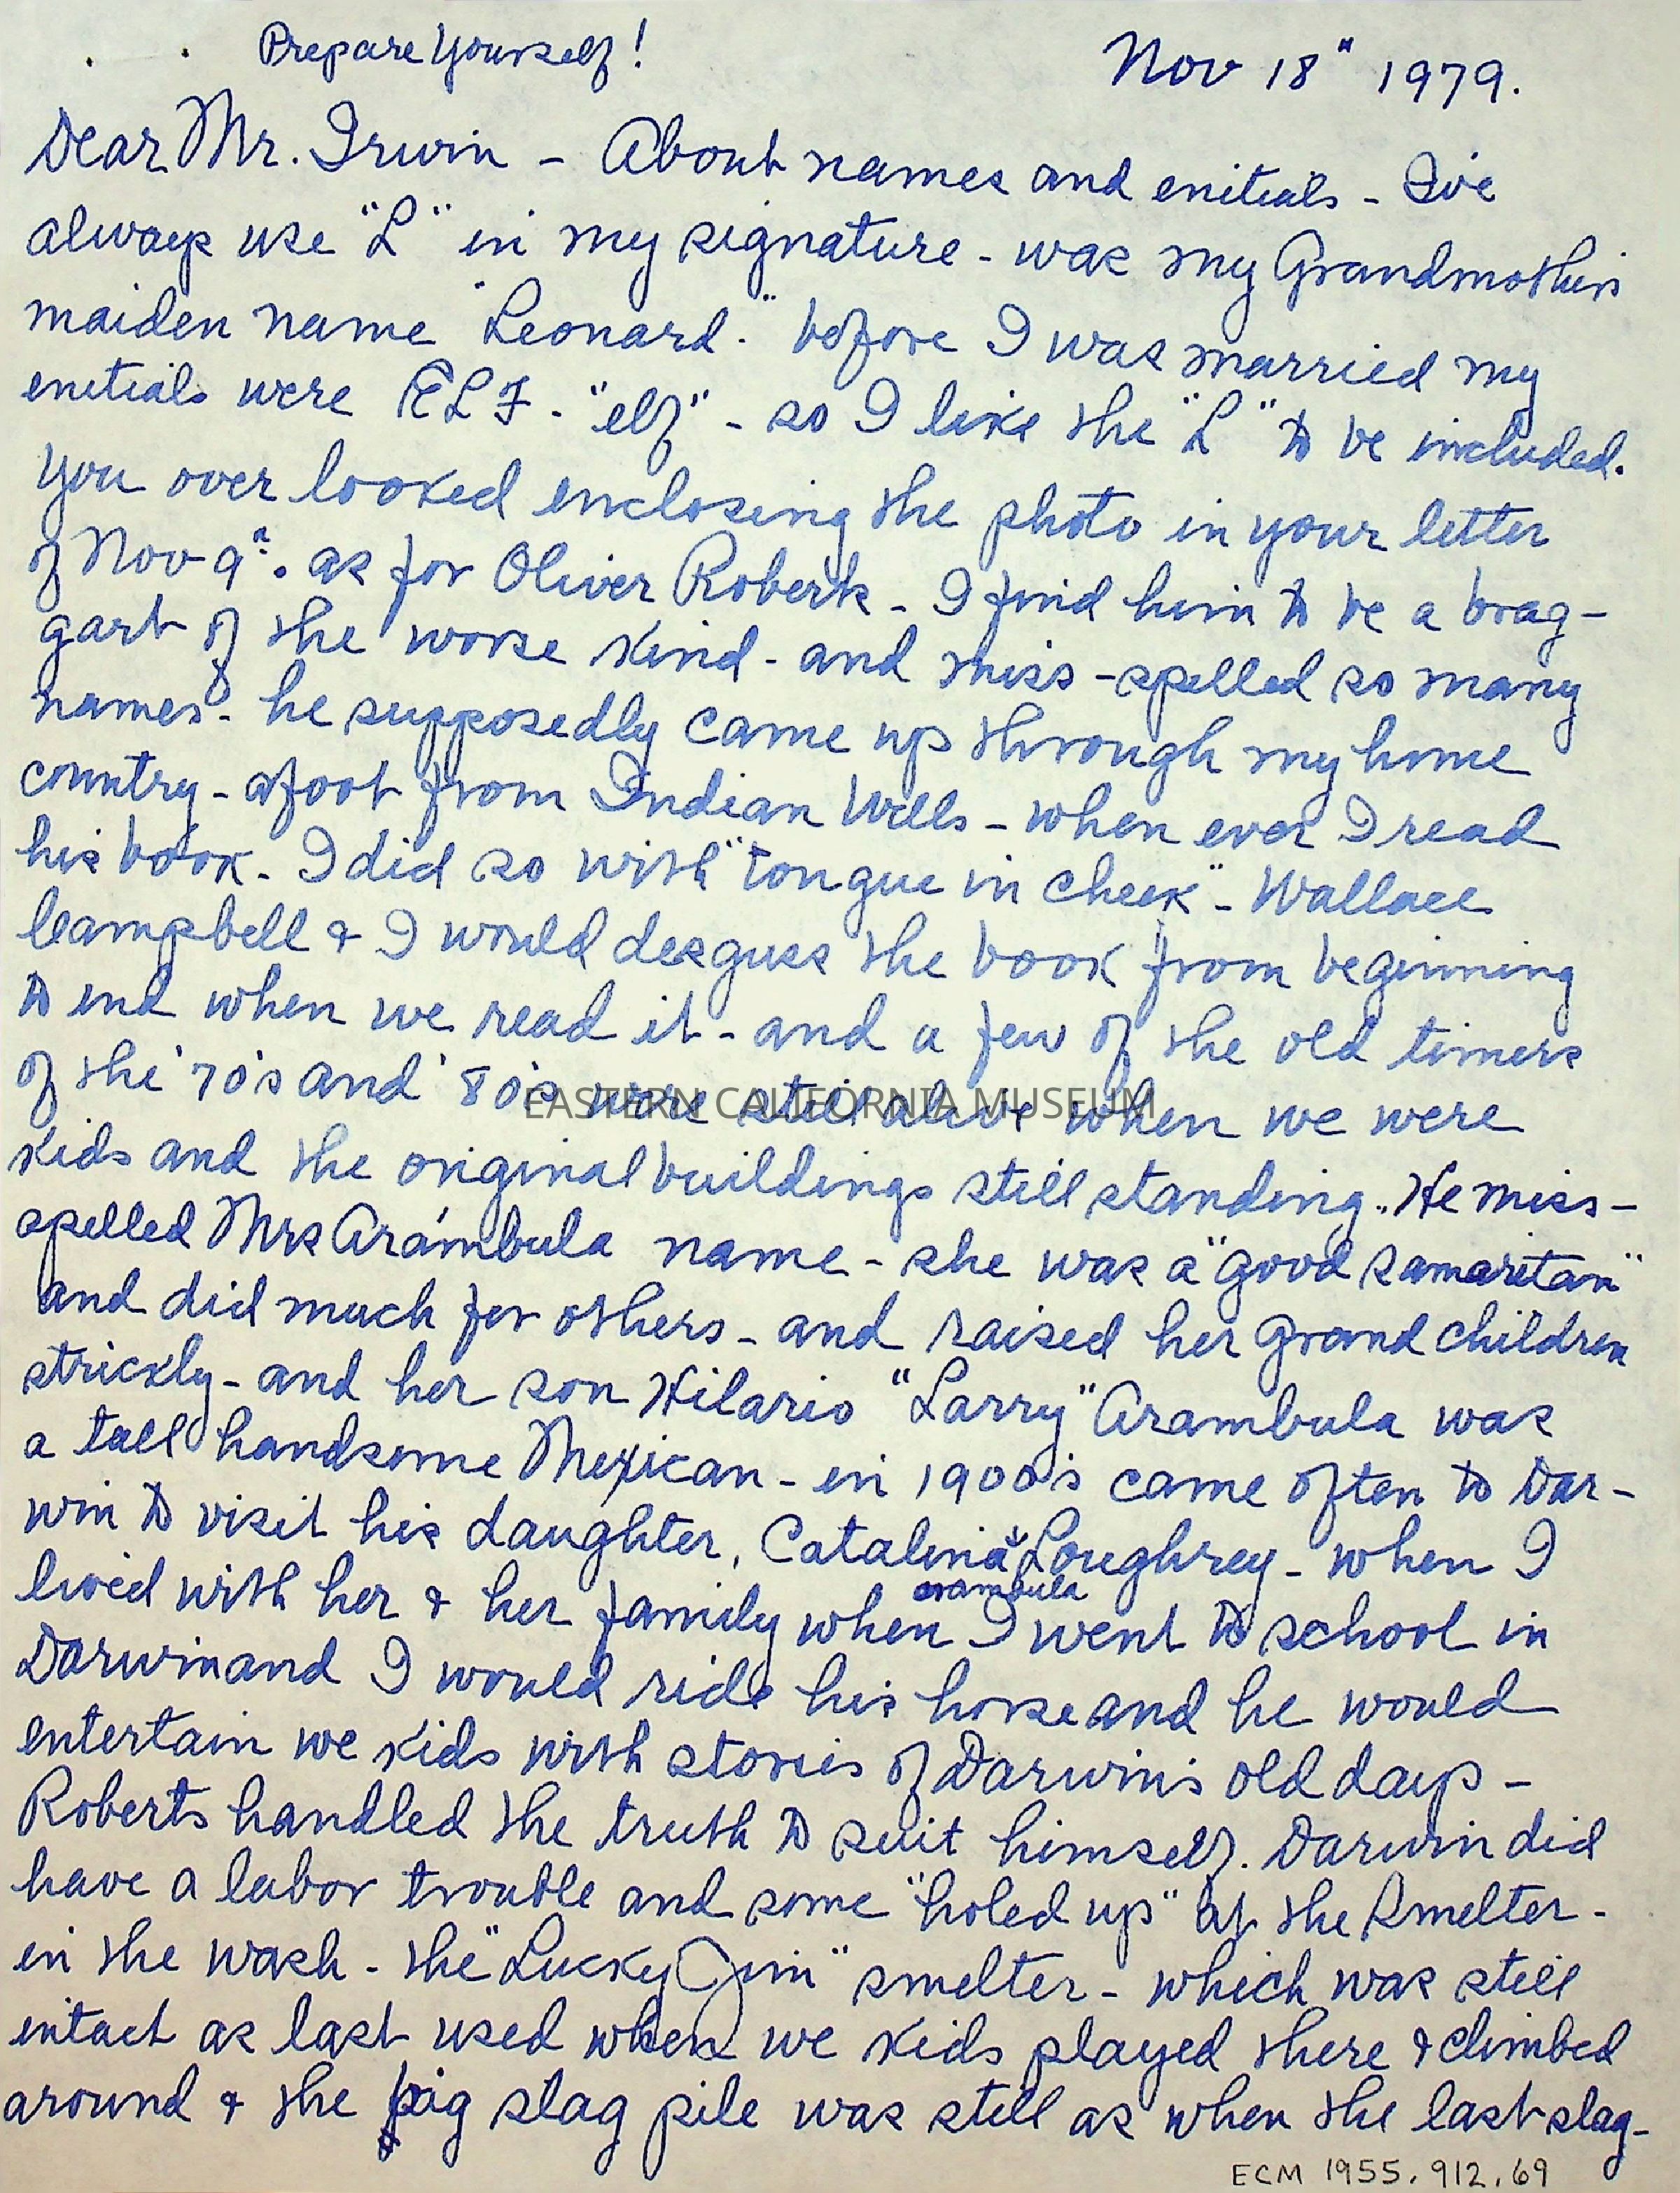 Prepare Yourself!
Nov 18" 1979.
Dear Mr. Irwin - About names and enitials - I've
always use "L" in my signature - was my Grandmother's
maiden name "Leonard." before I was married my
enitials were ELF - "elf" - so I like the "L" to be included.
You over looked enclosing the photo in your letter
of Nov 9". as for Oliver Roberts - I find him to be a brag-
gart of the worse kind - and miss-spelled so many
names - he supposedly came up through my home
country - afoot from Indian Wells - when ever I read
his book - I did so with "tongue in cheek" - Wallace
Campbell & I would desguss the book from beginning
to end when we read it - and a few of the old timers
of the '70's and '80's were still alive when we were
EASTERN CALIFORNIA MUSEUM
kids and the original buildings still standing. He miss-
spelled Mrs Arámbula name - she was a "good samaritan"
and did much for others - and raised her grand children
strickly - and her son Hilario "Larry" Arambula was
a tall handsome Mexican - in 1900's came often to Dar-
win to visit his daughter, Catalina Loughrey - when I
arambula
lived with her & her family when I went to school in
Darwin and I would ride his horse and he would
entertain we kids with stories of Darwin's old days -
Roberts handled the truth to suit himself. Darwin did
have a labor trouble and some "holed up" at the smelter -
in the wash - the "Lucky Jim" smelter - which was still
intact as last used when we kids played there & climbed
around & the big slag pile was still as when the last slag-
ECM 1955.912.69